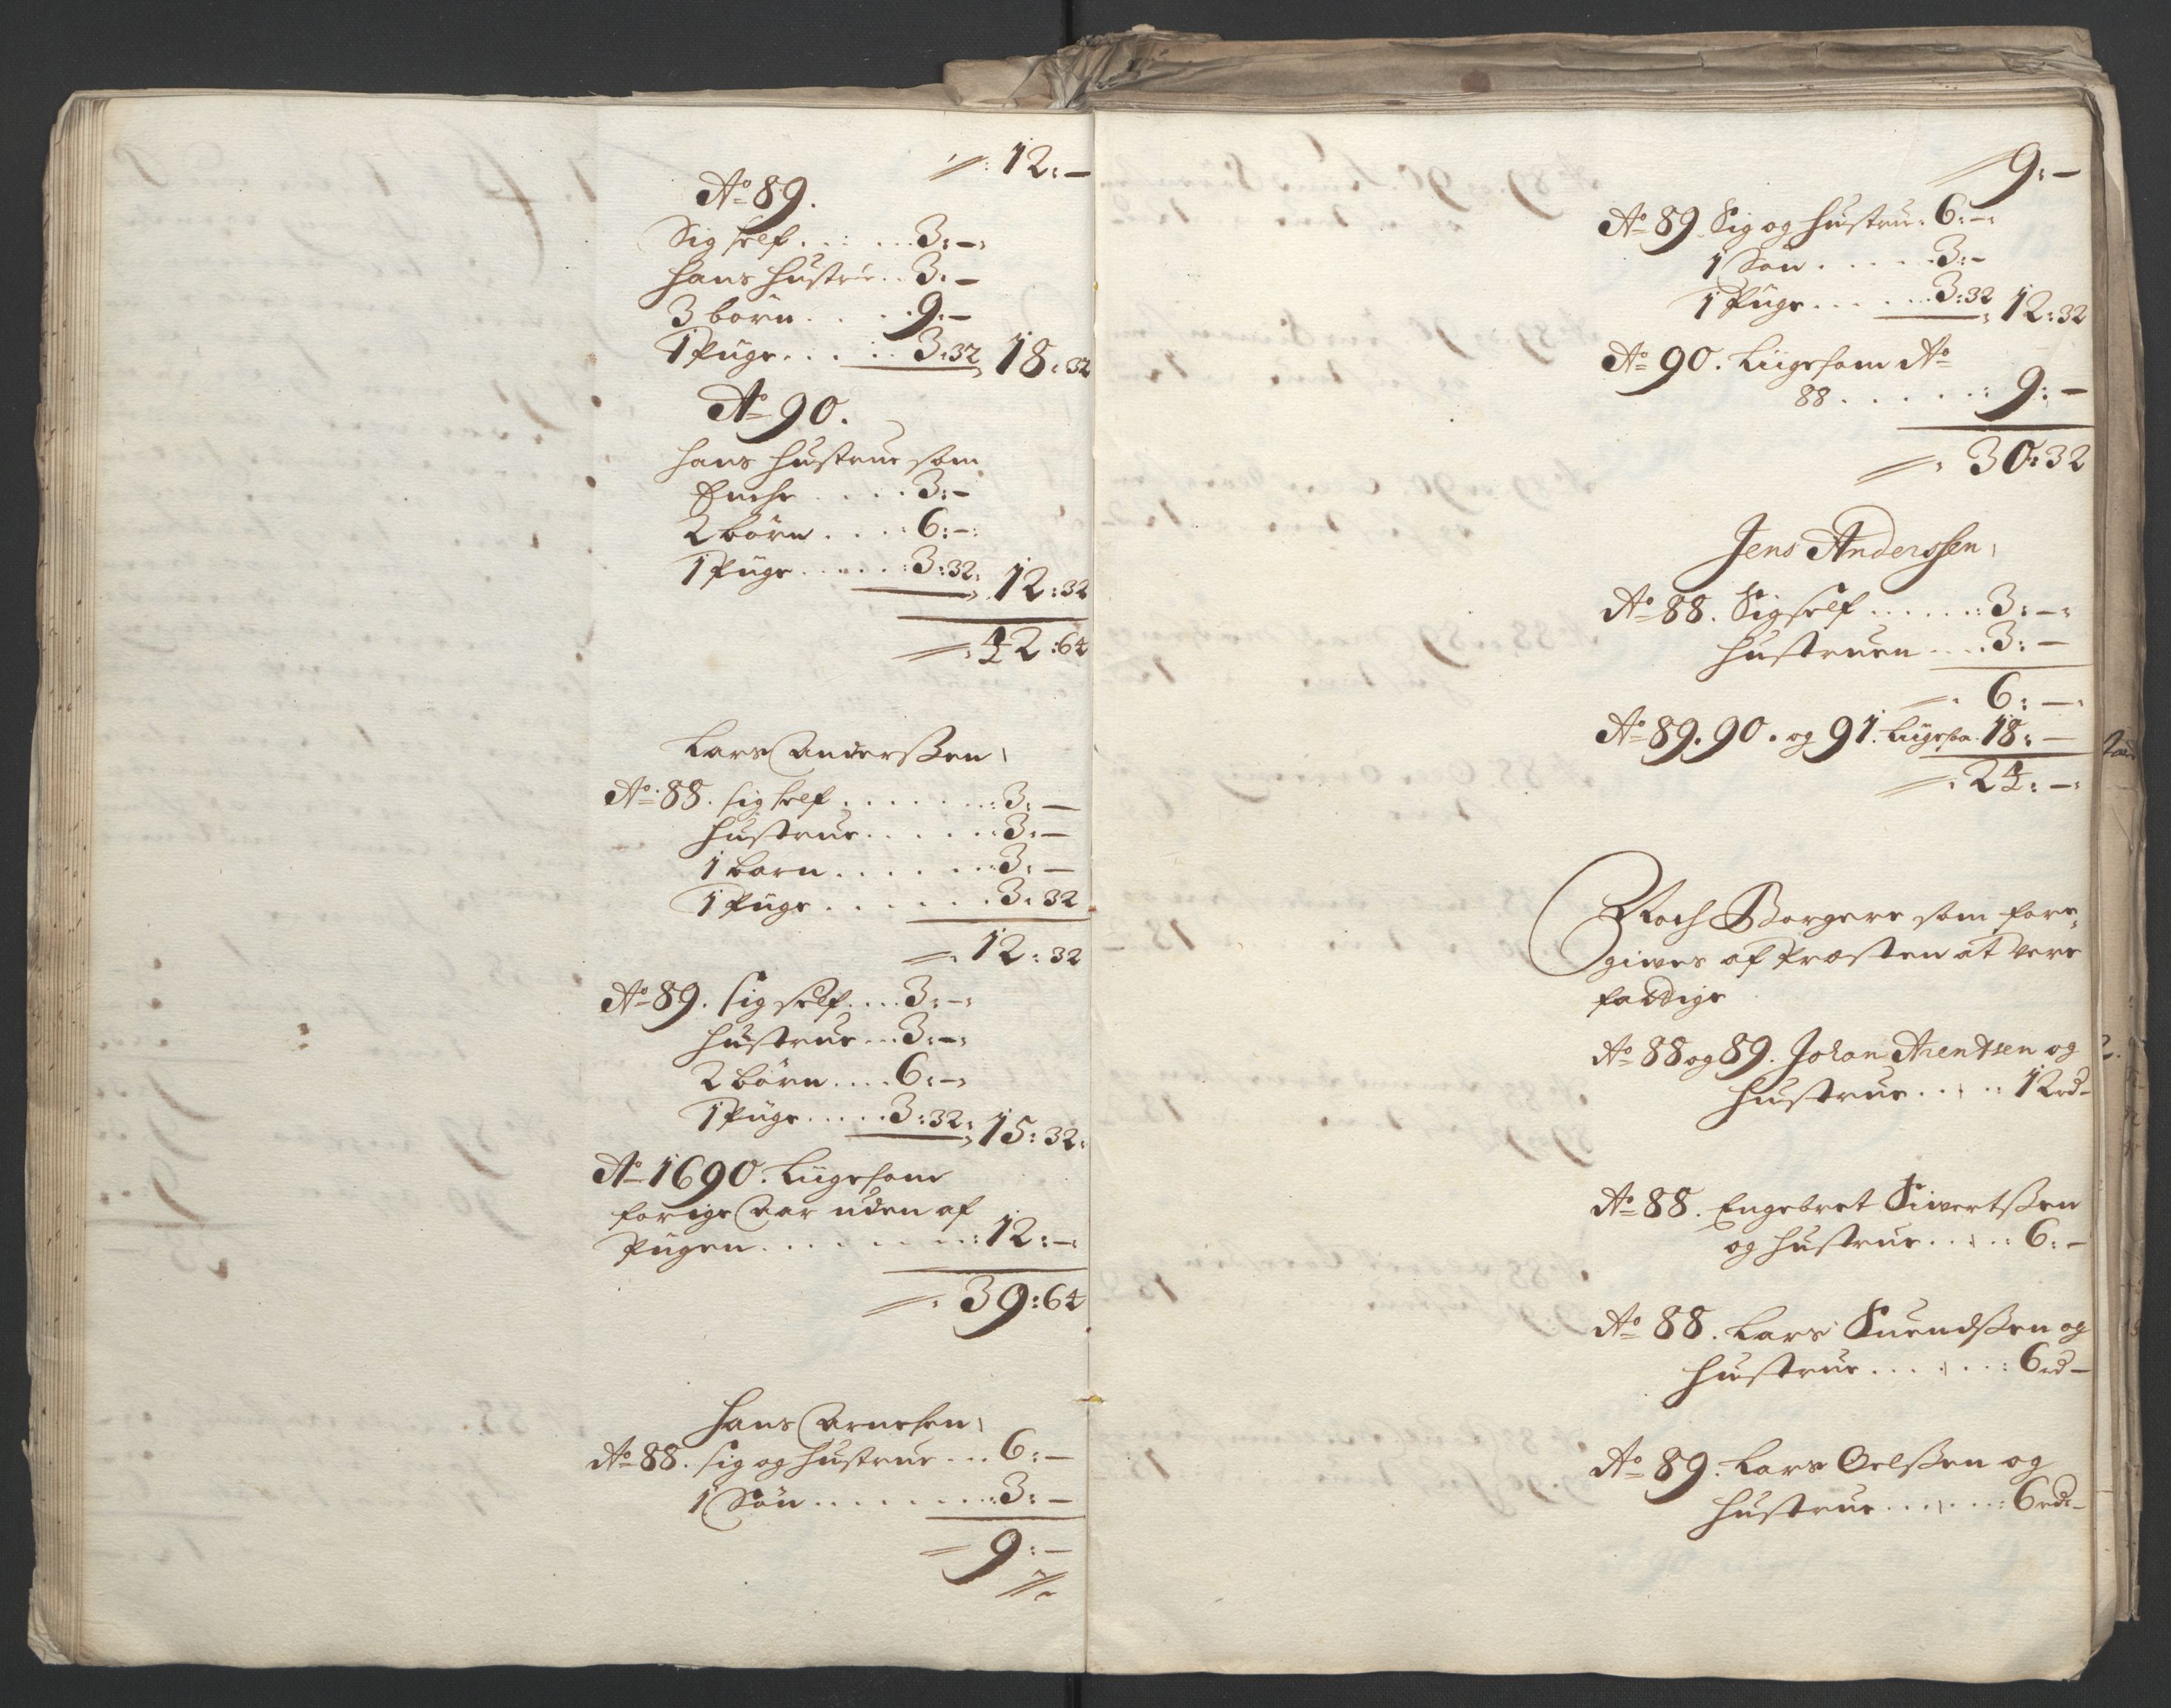 12:–
Ao 89.
Sig self . . . . . 3:–
hans hustrue . . 3:–
3 börn . . . . 9:–
1 Pige . . . . . 3:32 18:32
Ao 90.
hans hustrue som
Enche . . . . 3:–
2 börn . . . . 6:–
1 Pige . . . . . 3:32 12:32
42:64
Lars Anderßen
Ao 88. sig self . . . . . . . 3:–
hustrue . . . . . 3:–
1 barn . . . . . . 3:–
1 Pige . . . . . . 3:32
12:32
Ao 89. sig self . . . 3:–
hustrue . . . 3:–
2 börn . . . . 6:–
1 Pige . . . . . 3:32 15:32
Ao 1690. Liigesom
forige Aar uden af
Pigen . . . . . . . . 12:–
39:64
Hans Arnesen
Ao 88. sig og hustrue . . . 6:–
1 Sön . . . . . . . . 3:–
9:–
9:–
Ao 89 Sig og hustrue. 6:–
1 Sön . . . . . 3:–
1 Pige . . . . . 3:32 12:32
Ao 90. Liigesom Ao
88 . . . . . . 9:–
30:32
Jens Anderssen
Ao 88. Sig self . . . . . . 3:–
hustruen . . . . 3:–
6:–
Ao 89. 90. og 91. Liigesaa. 18:–
24:–
Noch Borgere som fore-
gives af Præsten at vere
fattige
Ao 88 og 89. Johan Arentsen og
hustrue . . . . . 12 rd –
Ao 88. Engebret Sivertßen
og hustrue . . . . . 6:–
Ao 88. Lars Suendßen og
hustrue . . . . . . . 6 rd –
Ao 89. Lars Oelßen og
hustrue . . . . . . . 6 rd –